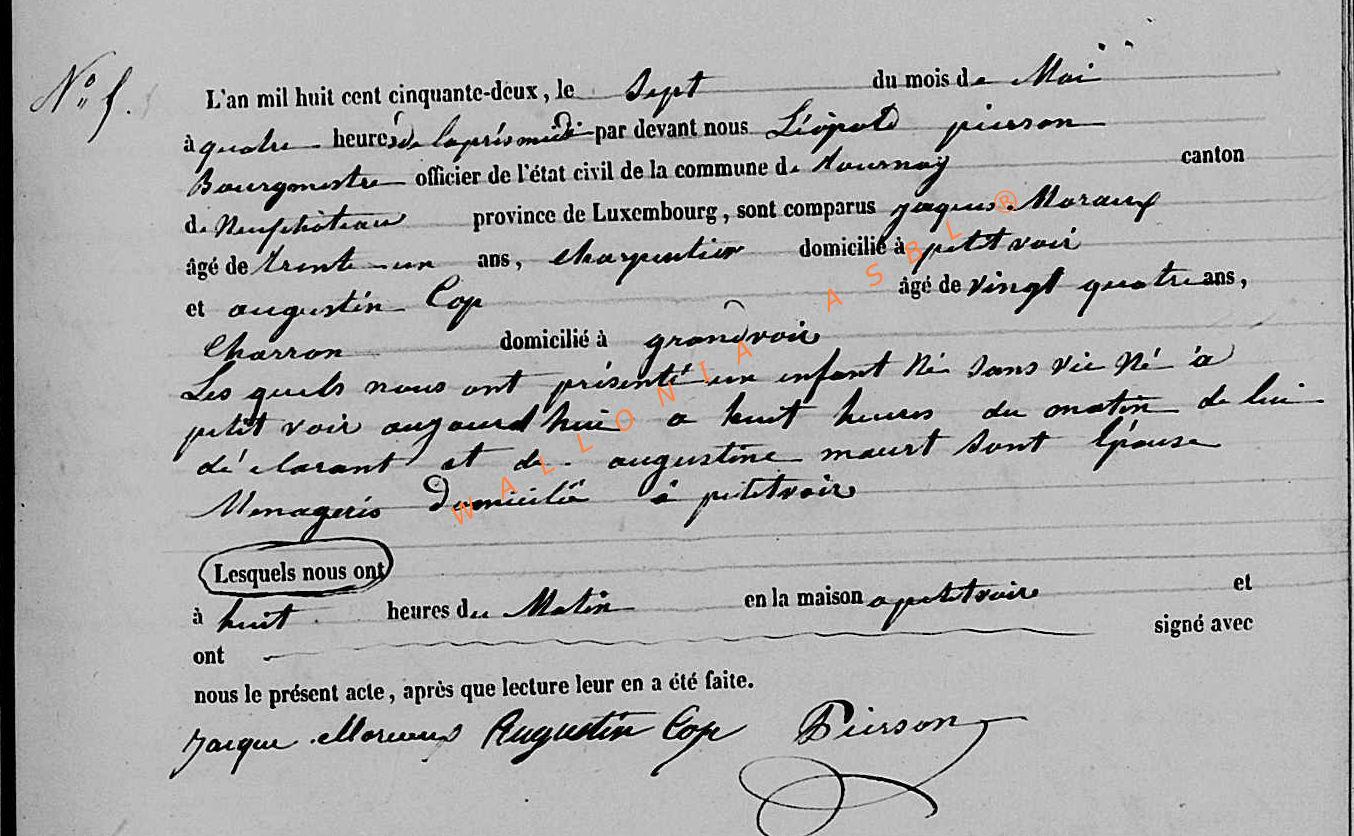 N° 5.
L'an mil huit cent cinquante-deux, le Sept du mois de Mai
à quatre heures de laprés midi par devant nous Léopold pierson
Bourgmestre officier de l'état civil de la commune de tournay canton
de Neufchâteau province de Luxembourg, sont comparus jaques Moraux
âgé de trente un ans, charpentier domicilié à petitvoir
et augustin Cop âgé de vingt quatre ans,
Charron domicilié à grandvoir
Les quels nous ont présenté un enfant Né sans vie Né à
petit voir aujourd huie a huit heures du matin de lui
déclarant et de augustine sont Epouse
Menagerie domicilié à petitvoir
Lesquels nous ont
à huit heures du Matin en la maison a petitvoir et
ont signé avec
nous le présent acte, après que lecture leur en a été faite.
Jacque Augustin Cop Pierson
WALLONIA ASBL ®